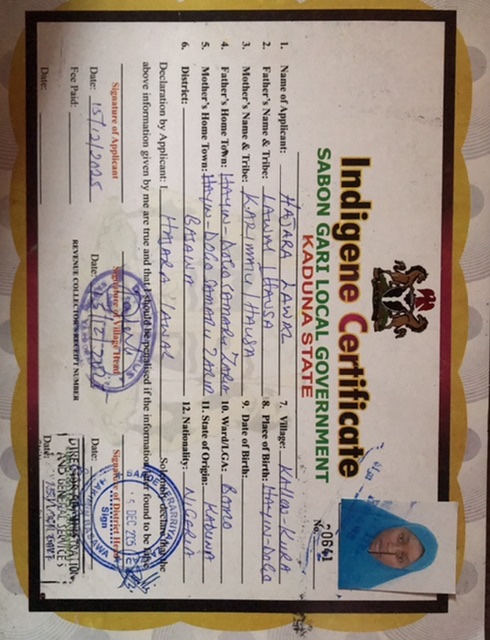 Indigene Certificate
SABON GARI LOCAL GOVERNMENT
KADUNA STATE
No. 00641
1. Name of Applicant: HAJARA LAWAL
2. Father's Name & Tribe: LAWAL / HAUSA
3. Mother's Name & Tribe: KARIMATU / HAUSA
4. Father's Home Town: HAYIN-DOGO SAMARU ZARIA
5. Mother's Home Town: HAYIN-DOGO SAMARU ZARIA
6. District: BASAWA
7. Village: KALLON-KURA
8. Place of Birth: HAYIN-DOGO
9. Date of Birth:
10. Ward/LGA: BOMO
11. State of Origin: KADUNA
12. Nationality: NIGERIA
Declaration by Applicant: I, HAJARA LAWAL Solemnly declare that the
above information given by me are true and that I should be penalised if the information later found to be false
Signature of Applicant
Date: 15/12/2025
Signature of Village Head
Date:
Signature of District Head
Date:
15 DEC 2025
Sign
Fee Paid:
REVENUE COLLECTOR'S RECEIPT NUMBER
Date:
Date: